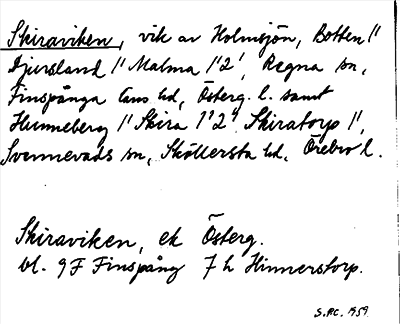 Skiraviken, vik av Holmsjön, Botten 1/1
Djursland 1/1 Malma 1/2, Regna sn,
Finspånga läns hd, Österg. l. samt
Hunneberg 1/1 Skira 1/2 Skiratorp 1/1,
Svennevads sn, Sköllersta hd, Örebro l.
Skiraviken, ek Österg.
bl. 9F Finspång 7 h Hinnerstorp.
S.P.C. 1959